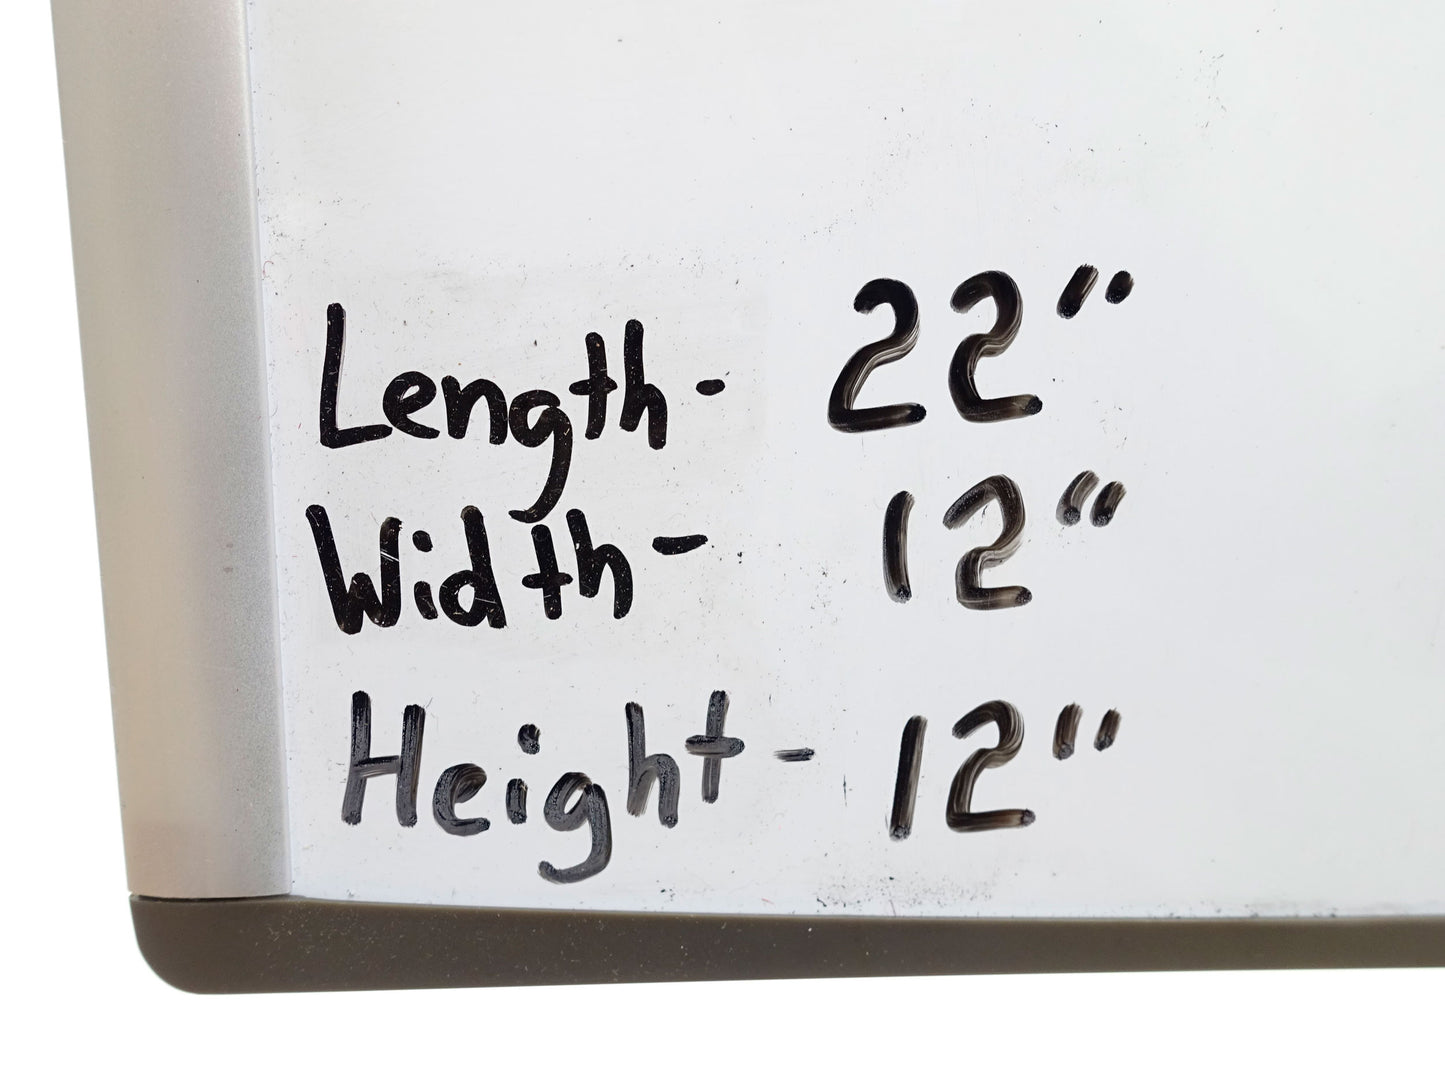 Length - 22"
Width - 12"
Height - 12"